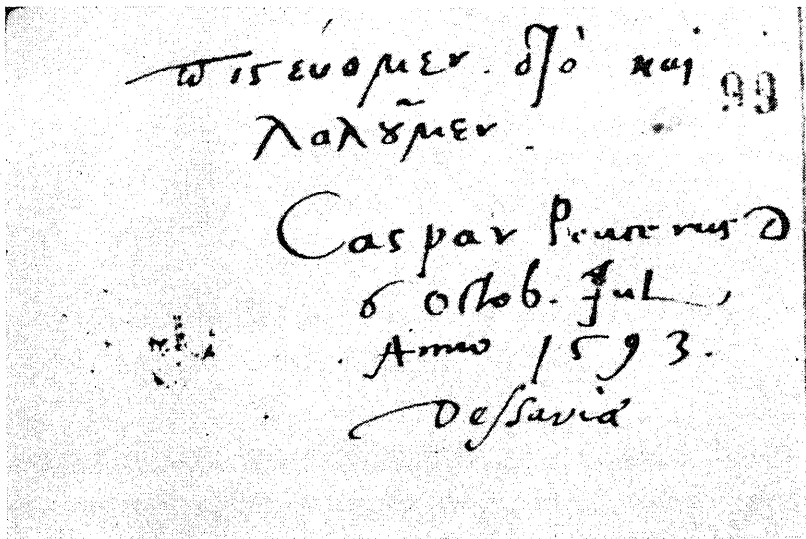 πιςεύομεν. διὸ καὶ
99
λαλοῦμεν.
Caspar Peucerus D
6 Octob. Jul,
Anno 1593.
Dessaviæ